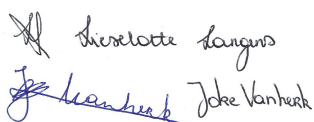 Lieselotte Langens
Vanherk Joke Vanherk